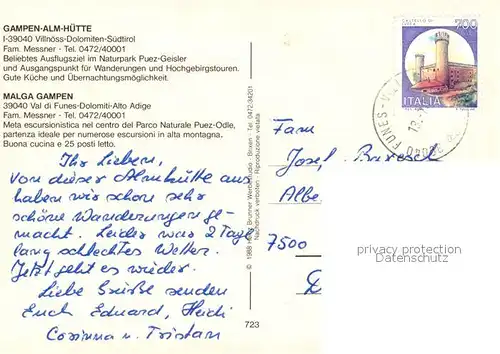 GAMPEN-ALM-HÜTTE
I-39040 Villnöss-Dolomiten-Südtirol
Fam. Messner - Tel. 0472/40001
Beliebtes Ausflugsziel im Naturpark Puez-Geisler
und Ausgangspunkt für Wanderungen und Hochgebirgstouren.
Gute Küche und Übernachtungsmöglichkeit.
MALGA GAMPEN
39040 Val di Funes-Dolomiti-Alto Adige
Fam. Messner - Tel. 0472/40001
Meta escursionistica nel centro del Parco Naturale Puez-Odle,
partenza ideale per numerose escursioni in alta montagna.
Buona cucina e 25 posti letto.
Ihr Lieben,
von dieser Almhütte aus
haben wir schon sehr
schöne Wanderungen ge-
macht. Leider war 2 Tage
lang schlechtes Wetter.
Jetzt geht es wieder.
Liebe Grüße senden
Euch Eduard, Heidi
Corinna u. Tristan
Brunner Werbe Brixen - Tel. 0472-34201
Nachdruck verboten - Riproduzione vietata
723
700
ITALIA
39040
FUNES
Fam
Josef
Albe
7500
D
privacy protection
ansichtskarten-lexikon